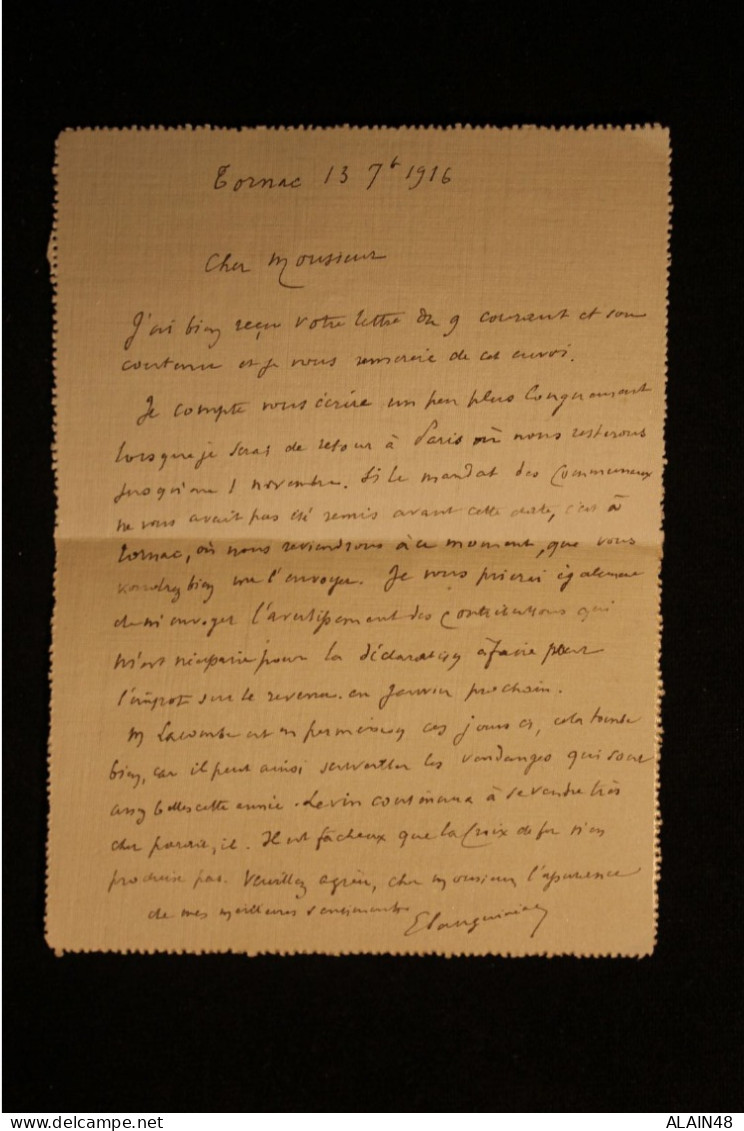 Tornac 13 7b 1916
Cher Monsieur
J'ai bien reçu votre lettre du 9 courant et son
contenu et je vous remercie de cet envoi.
Je compte vous écrire un peu plus longuement
lorsque je serai de retour à Paris où nous resterons
jusqu'au 1 novembre. Si le mandat des Communaux
ne vous avait pas été remis avant cette date, c'est à
Tornac, où nous reviendrons à ce moment, que vous
voudrez bien me l'envoyer. Je vous prierai également
de m'envoyer l'avertissement des contributions qui
m'est nécessaire pour la déclaration à faire pour
l'impôt sur le revenu en Janvier prochain.
M Lacombe est en permission ces jours ci, cela tombe
bien, car il peut ainsi surveiller les vendanges qui sont
assez belles cette année. Le vin continuera à se vendre très
cher paraît, il. Il est fâcheux que la Croix de fer n'en
produise pas. Veuillez agréer, cher monsieur, l'assurance
de mes meilleurs sentiments